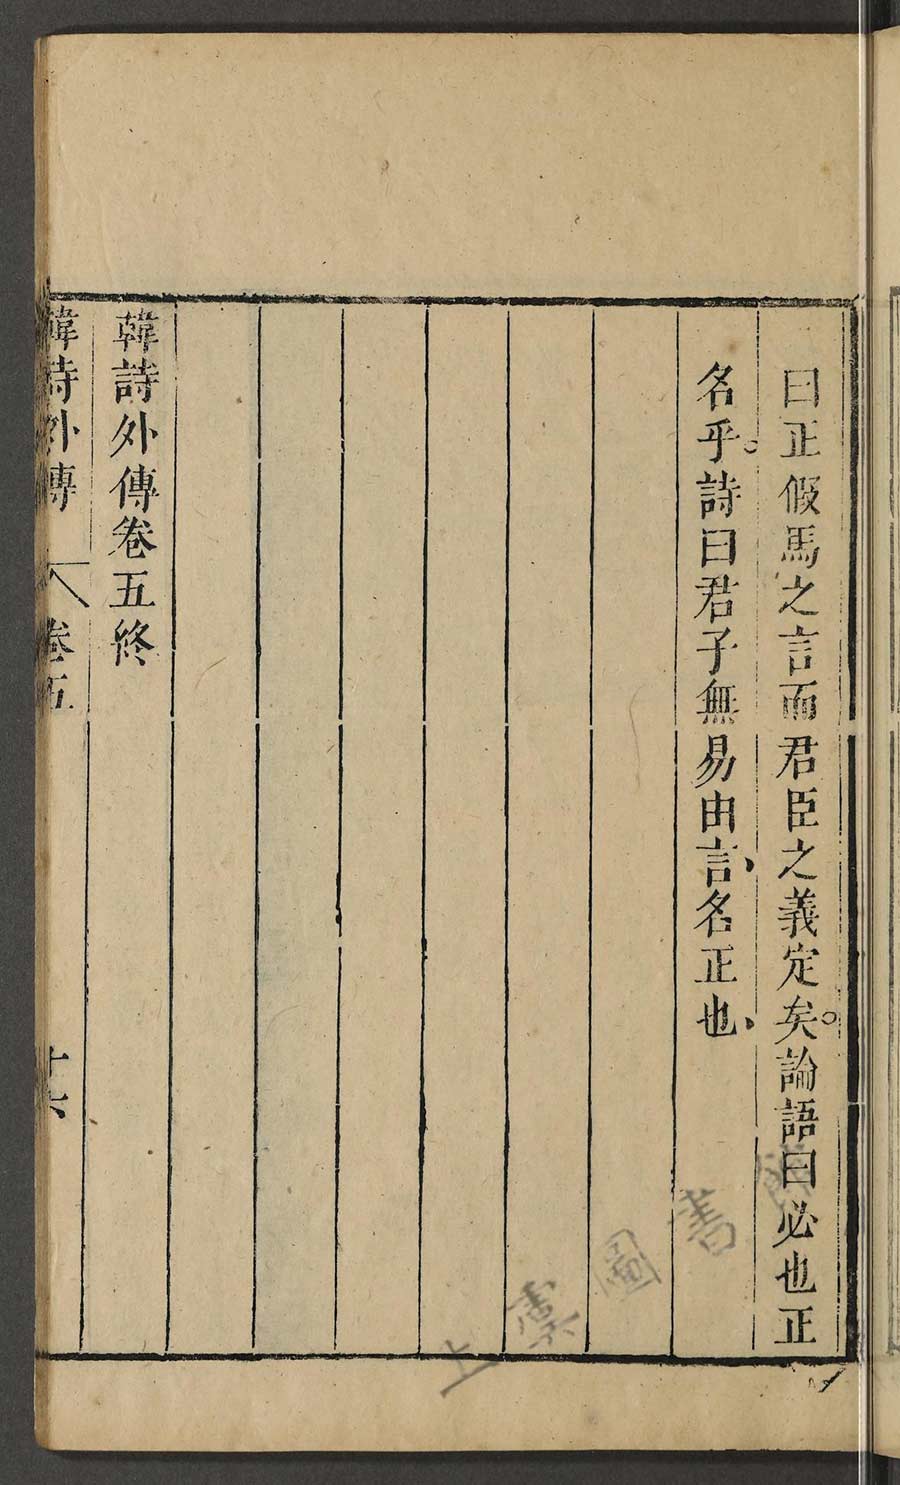 曰正假馬之言而君臣之義定矣。論語曰必也正
名乎。詩曰君子無易由言、名正也、
韓詩外傳卷五終
韓詩外傳 卷五 十六
上虞圖書館